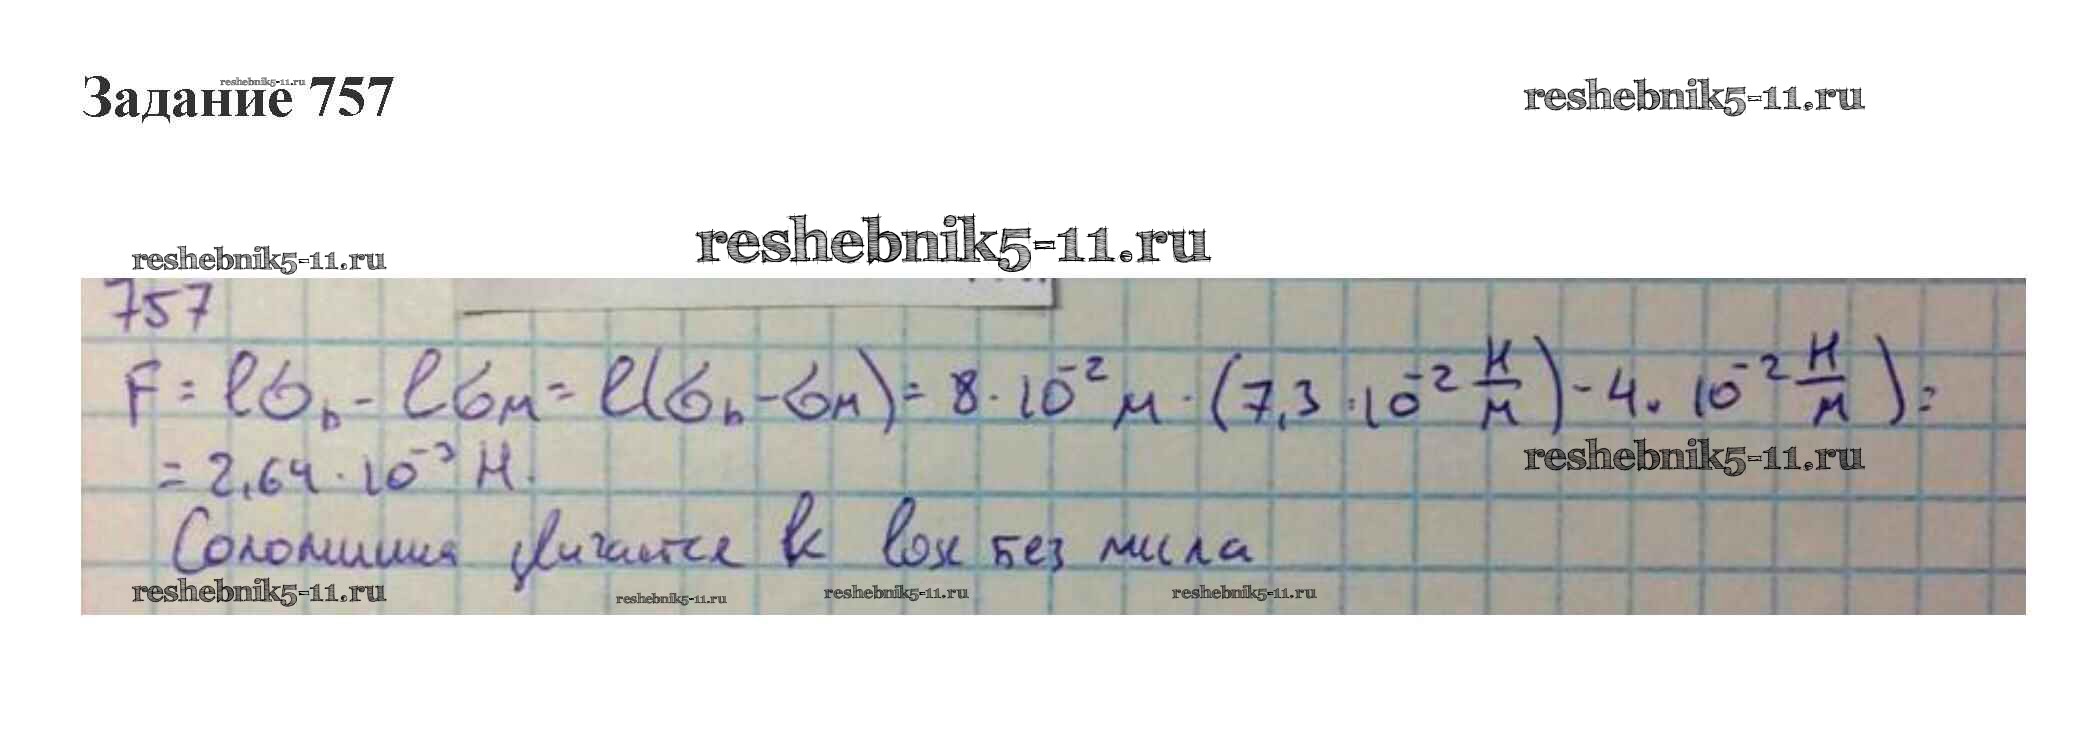 Задание 757
reshebnik5-11.ru
reshebnik5-11.ru
reshebnik5-11.ru
reshebnik5-11.ru
757
F = lσв - lσм = l(σв - σм) = 8 · 10⁻² м · (7,3 · 10⁻² Н/м) - 4 · 10⁻² Н/м) =
reshebnik5-11.ru
= 2,64 · 10⁻³ Н.
Соломинка двигается к воде без мыла
reshebnik5-11.ru
reshebnik5-11.ru
reshebnik5-11.ru
reshebnik5-11.ru